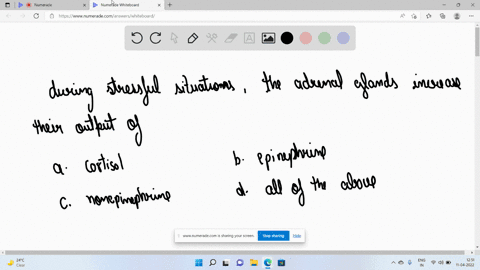 Numerade
Numerade Whiteboard
https://www.numerade.com/answers/whiteboard/
during stressful situations, the adrenal glands increase
their output of
a. cortisol
b. epinephrine
c. norepinephrine
d. all of the above
www.numerade.com is sharing your screen.
Stop sharing
Hide
24°C
Clear
ENG
IN
12:51
11-04-2022